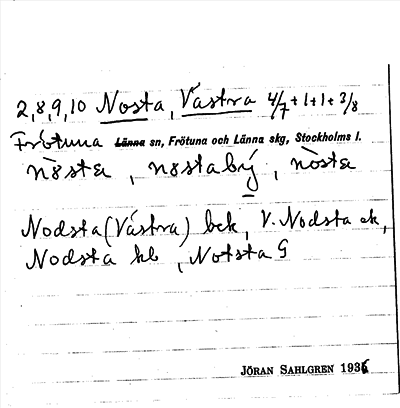 2,8,9,10 Nosta, Västra 4/7+1+1+3/8
Frötuna Länna sn, Frötuna och Länna skg, Stockholms l.
nòsta, nostabý, nòsta
Nodsta (Västra) bck, V. Nodsta ck,
Nodsta hb, Notsta G
JÖRAN SAHLGREN 1936